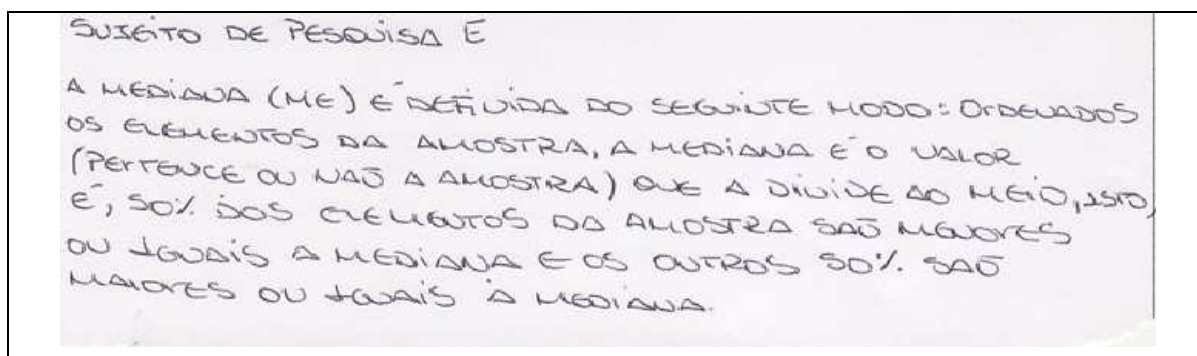 SUJEITO DE PESQUISA E
A MEDIANA (ME) É DEFINIDA DO SEGUINTE MODO: ORDENADOS
OS ELEMENTOS DA AMOSTRA, A MEDIANA É O VALOR
(PERTENCE OU NAÕ A AMOSTRA) QUE A DIVIDE AO MEIO, ISTO,
É, 50% DOS ELEMENTOS DA AMOSTRA SAÕ MENORES
OU IGUAIS A MEDIANA E OS OUTROS 50% SAÕ
MAIORES OU IGUAIS À MEDIANA.